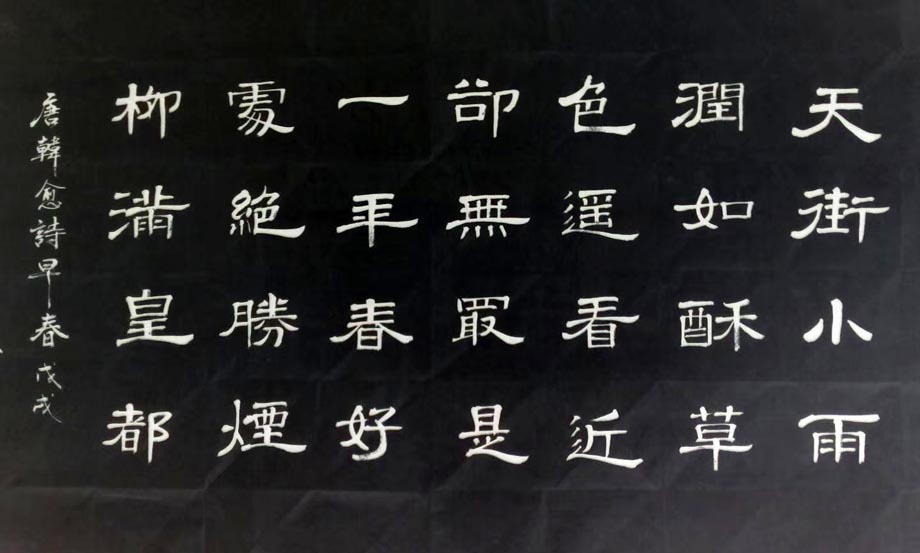 天街小雨
潤如酥草
色遥看近
卻無冣是
一年春好
處絕勝煙
柳滿皇都
唐韓愈詩早春戊戌